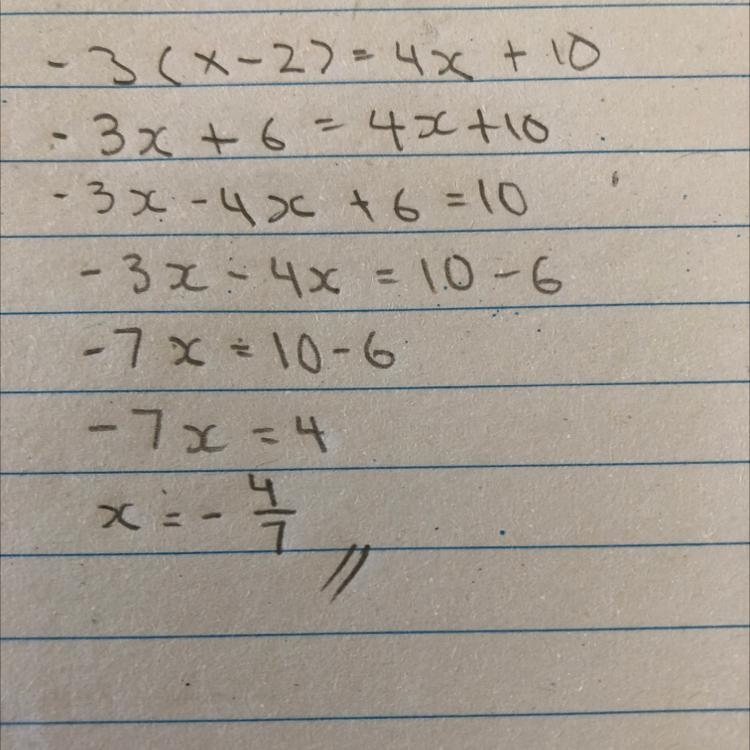 -3(x-2)=4x+10
-3x+6=4x+10
-3x-4x+6=10
-3x-4x=10-6
-7x=10-6
-7x=4
x=-4/7 //